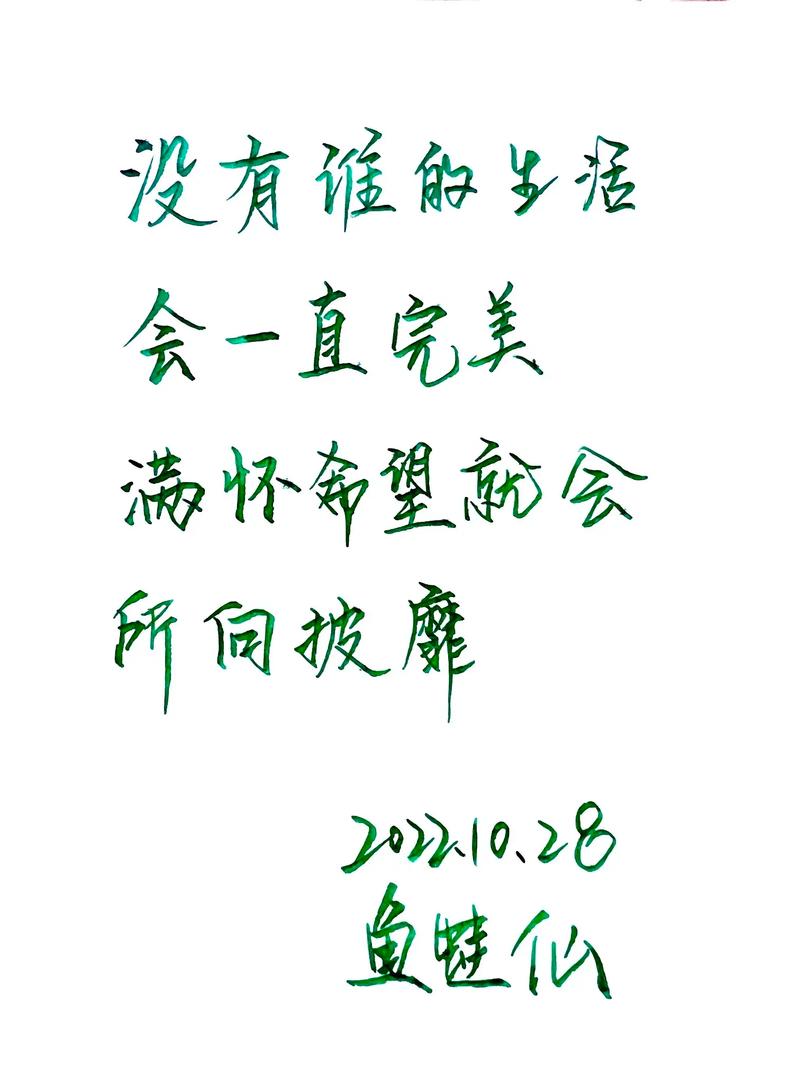 没有谁的生活
会一直完美
满怀希望就会
所向披靡
2022.10.28
鱼蛙仙